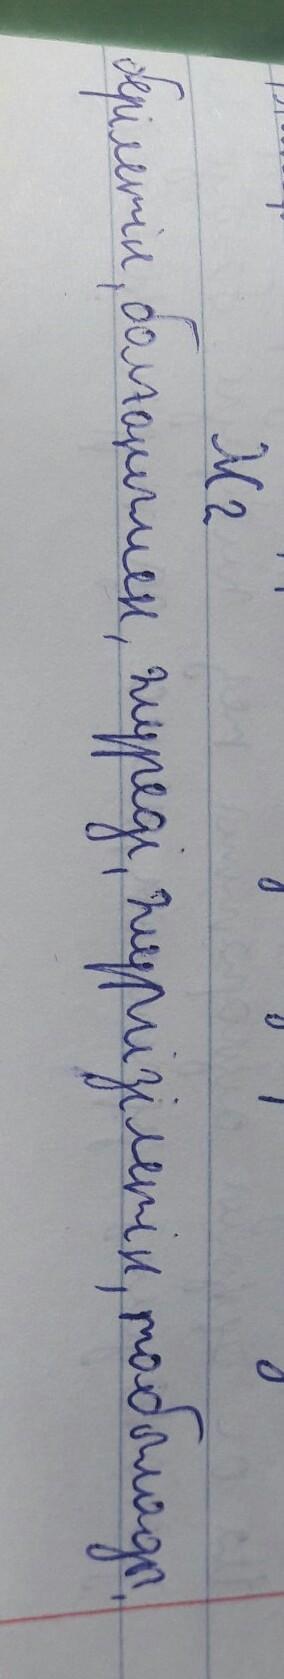 №2
берілетін, болғанымен, жүреді, жүргізілетін, табылады,